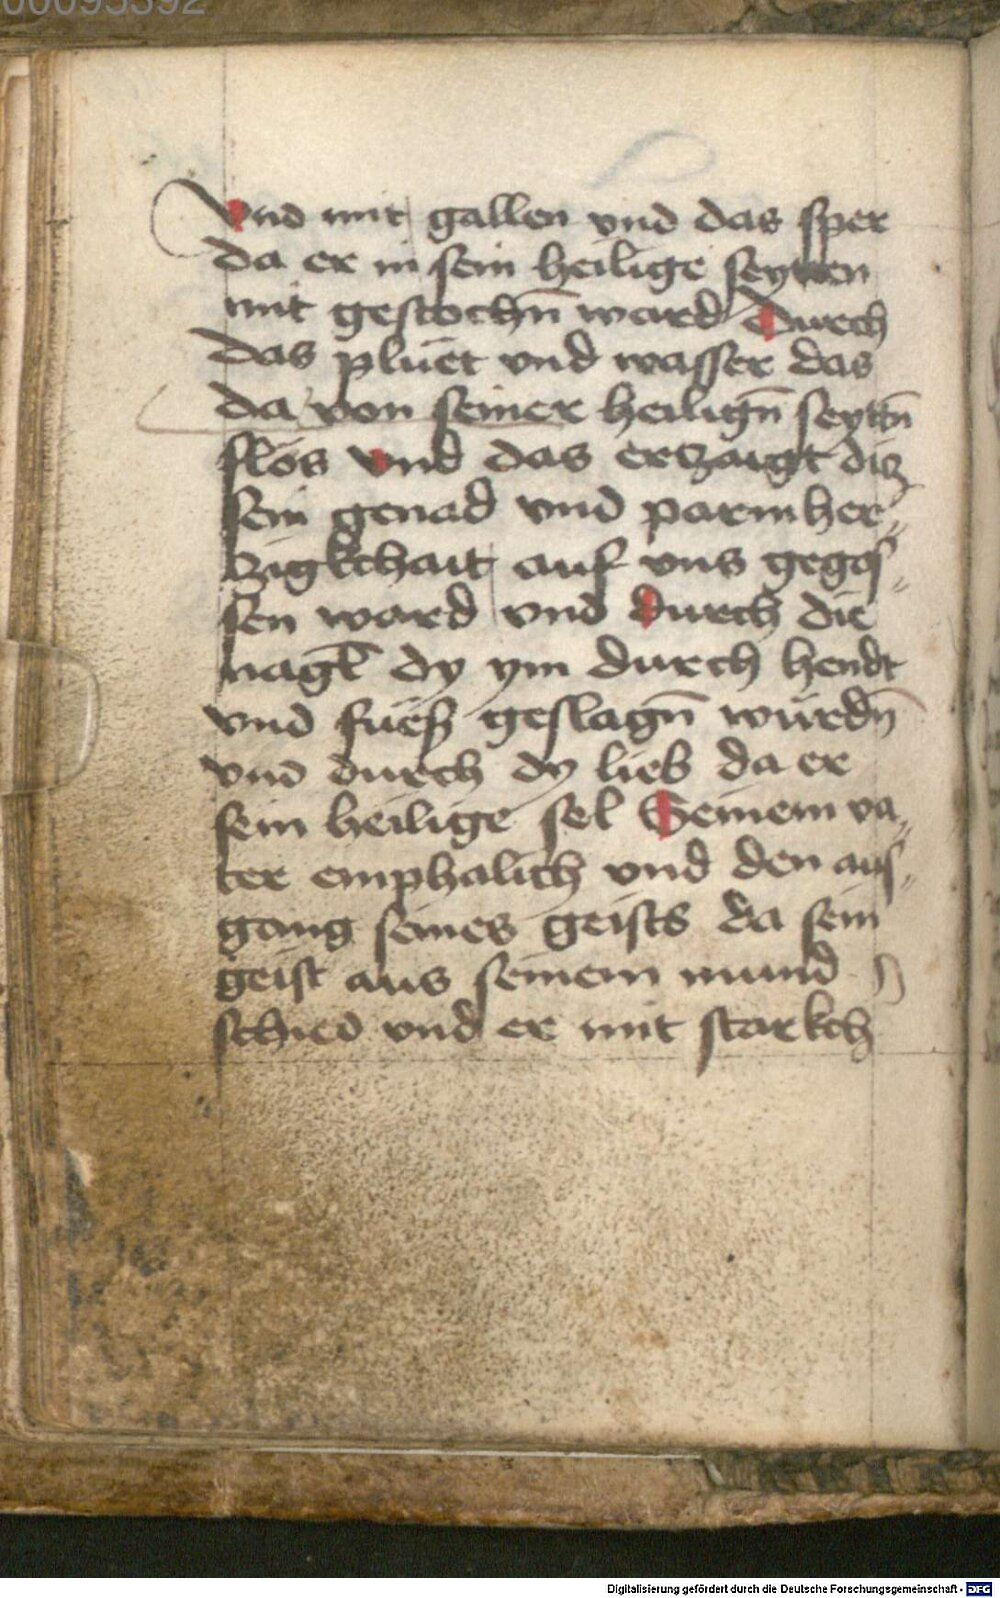 00095392
Vnd mit gallen vnd das sper
da er in sein heilige seytten
mit gestochn̄ ward Durch
das pluet vnd wasser das
da von seiner heilign̄ seyttn̄
flos vnd das erczaigt
sein genad vnd parmher„
czigkchait auf vns gegos„
sen ward vnd durch die
nagl̄ dy ym durch hendt
vnd fueß geslagn̄ wurdn̄
vnd durch dy lieb da er
sein heilige sel Seinem va„
ter emphalich vnd den aus„
gang seines geists da sein
geist aus seinem mund
schied vnd er mit starkch
Digitalisierung gefördert durch die Deutsche Forschungsgemeinschaft - DFG